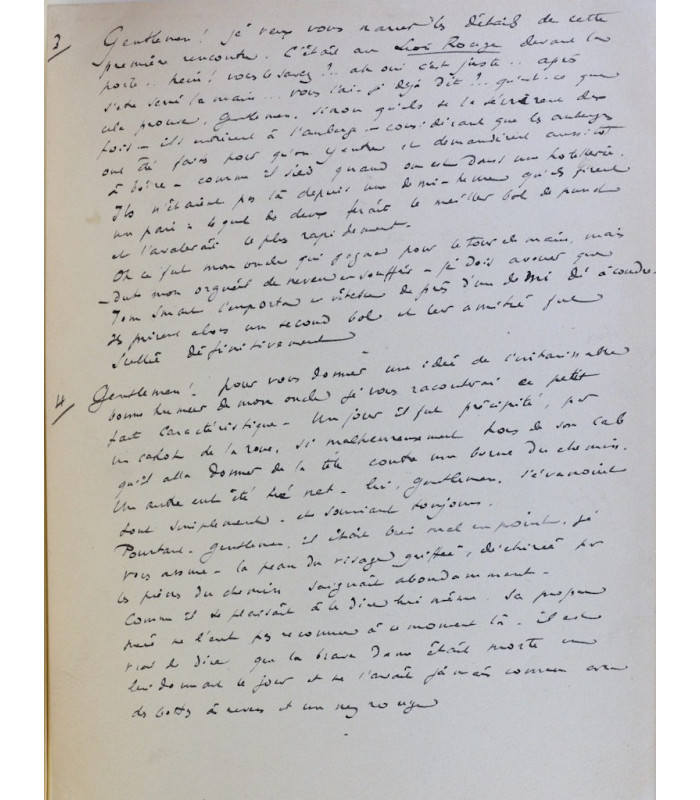 3/ Gentlemen! je veux vous narrer les détails de cette
première rencontre. C'était au Lion Rouge devant la
porte.. hein! vous le savez?.. ah oui c'est juste.. après
s'être serré la main... vous l'ai-je déjà dit?.. qu'est-ce que
cela prouve, Gentlemen, sinon qu'ils se la serrèrent deux
fois - ils entrèrent à l'auberge - considérant que les auberges
ont été faites pour qu'on y entre et demandèrent aussitôt
à boire - comme il sied quand on est dans une hôtellerie.
Ils n'étaient pas là depuis une demi-heure qu'ils firent
un pari à lequel des deux ferait le meilleur bol de punch
et l'avalerait le plus rapidement.
Oh ce fut mon oncle qui gagna pour le tour de main, mais
- dut mon orgueil de neveu en souffrir - je dois avouer que
Tom Smart l'emporta en vitesse de près d'un demi dé à coudre.
Ils prirent alors un second bol et leur amitié fut
scellée définitivement
4/ Gentlemen! pour vous donner une idée de l'intarissable
bonne humeur de mon oncle je vous raconterai ce petit
fait caractéristique - Un jour il fut précipité, par
un cahot de la roue, si malheureusement hors de son cab
qu'il alla donner de la tête contre une borne du chemin.
Un autre eut été tué net - lui, gentlemen, s'évanouit
tout simplement - et souriant toujours.
Pourtant, gentlemen, il était bien mal en point, je
vous assure - la peau du visage griffée, déchirée par
les pierres du chemin saignait abondamment -
Comme il se plaisait à le dire lui même. Sa propre
mère ne l'eut pas reconnu à ce moment là - il est
vrai de dire que la brave dame était morte en
lui donnant le jour et ne l'avait jamais connu avec
des bottes à revers et un nez rouge